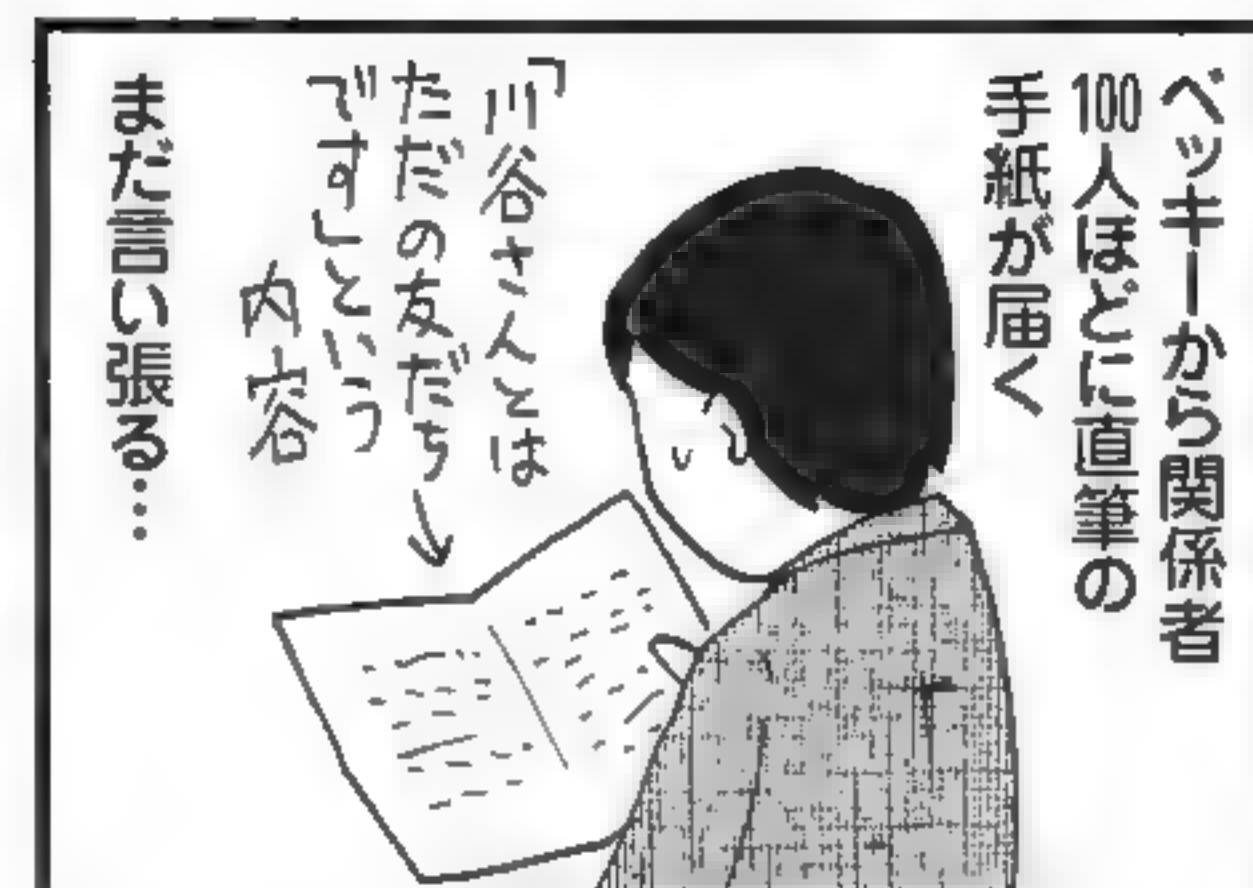 ベッキーから関係者
100人ほどに直筆の
手紙が届く
「川谷さんとは
ただの友だち
です」という
内容
まだ言い張る…